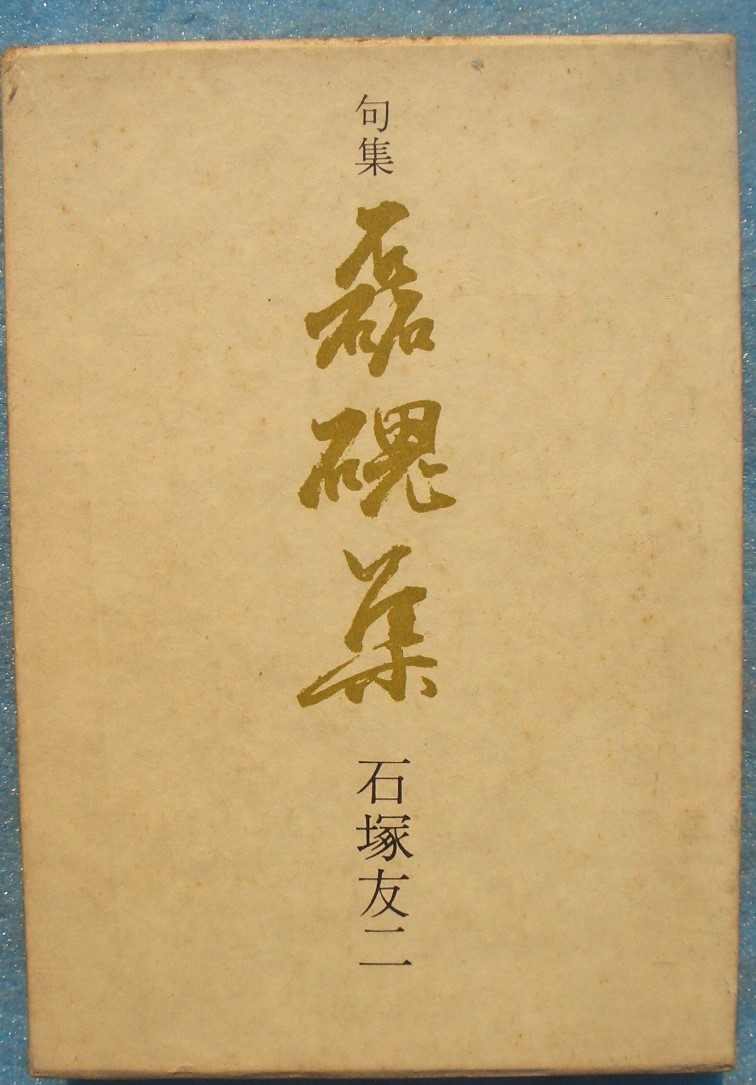 句集
磊磈集
石塚友二